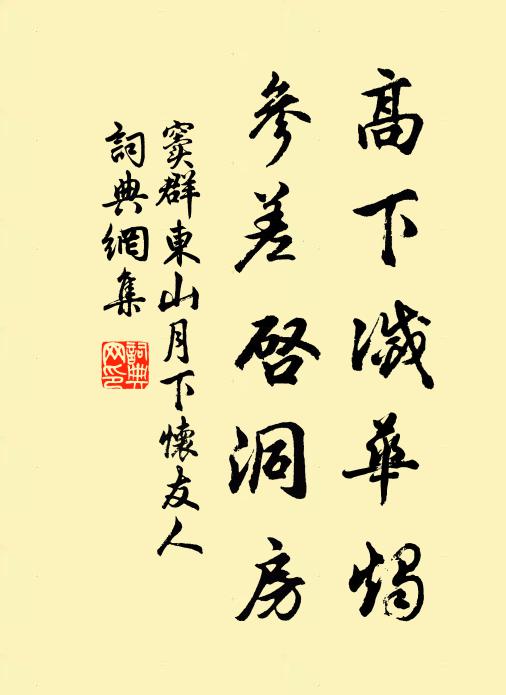 高下滅華燭
參差啓洞房
竇群東山月下懷友人
詞典網集
詞典网印